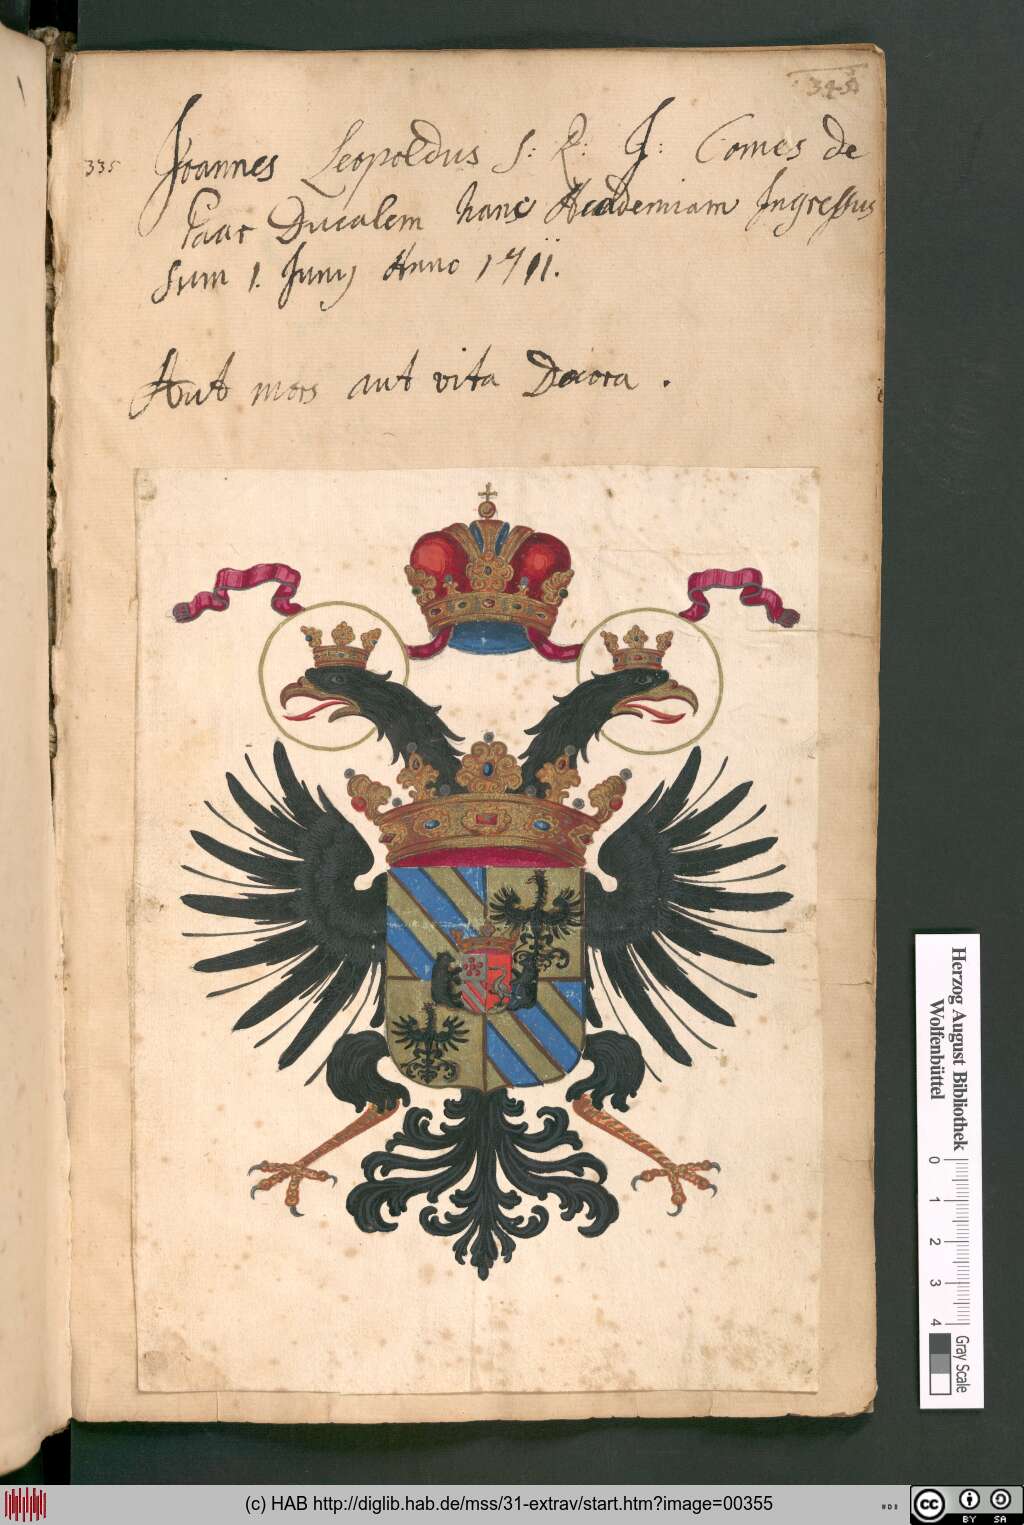 335
Joannes Leopoldus S: R: J: Comes de
Paar Ducalem hanc Academiam Ingressus
sum 1. Junij Anno 1711.
Aut mors aut vita Decora .
Herzog August Bibliothek
Wolfenbüttel
0 1 2 3 4
Gray Scale
(c) HAB http://diglib.hab.de/mss/31-extrav/start.htm?image=00355
cc BY SA